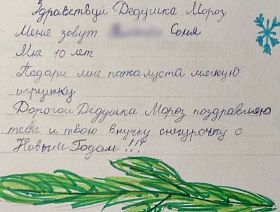 Здравствуй Дедушка Мороз
Меня зовут Соня
Мне 10 лет
Падари мне пожалуста мягкую
игрушку
Дорогой Дедушка Мороз поздравляю
тебе и твою внучку снегурочку с
Новым Годом!!!